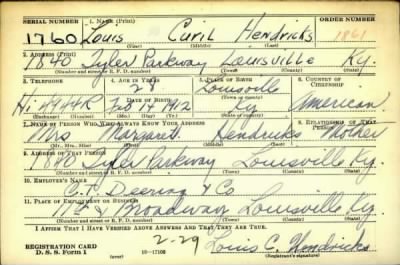 SERIAL NUMBER 1. NAME (Print) ORDER NUMBER
1760 Louis Curil Hendricks 1861
(First) (Middle) (Last)
2. ADDRESS (Print)
1840 Tyler Parkway Louisville Ky.
(Number and street or R. F. D. number) (Town) (County) (State)
3. TELEPHONE 4. AGE IN YEARS 5. PLACE OF BIRTH 6. COUNTRY OF CITIZENSHIP
28 Louisville
DATE OF BIRTH (Town or county)
Hi 4944R Feb 14 1912 Ky American
(Exchange) (No.) (Mo.) (Day) (Yr.) (State or country)
7. NAME OF PERSON WHO WILL ALWAYS KNOW YOUR ADDRESS 8. RELATIONSHIP OF THAT PERSON
Mrs Margaret Hendricks Mother
(Mr., Mrs., Miss) (First) (Middle) (Last)
9. ADDRESS OF THAT PERSON
1840 Tyler Parkway Louisville Ky.
(Number and street or R. F. D. number) (Town) (County) (State)
10. EMPLOYER'S NAME
C. T. Deering & Co
11. PLACE OF EMPLOYMENT OR BUSINESS
Broadway Louisville Ky.
(Number and street or R. F. D. number) (Town) (County) (State)
I AFFIRM THAT I HAVE VERIFIED ABOVE ANSWERS AND THAT THEY ARE TRUE.
REGISTRATION CARD
D. S. S. Form 1 16—17105
2-29 Louis C. Hendricks
(Registrant's signature)